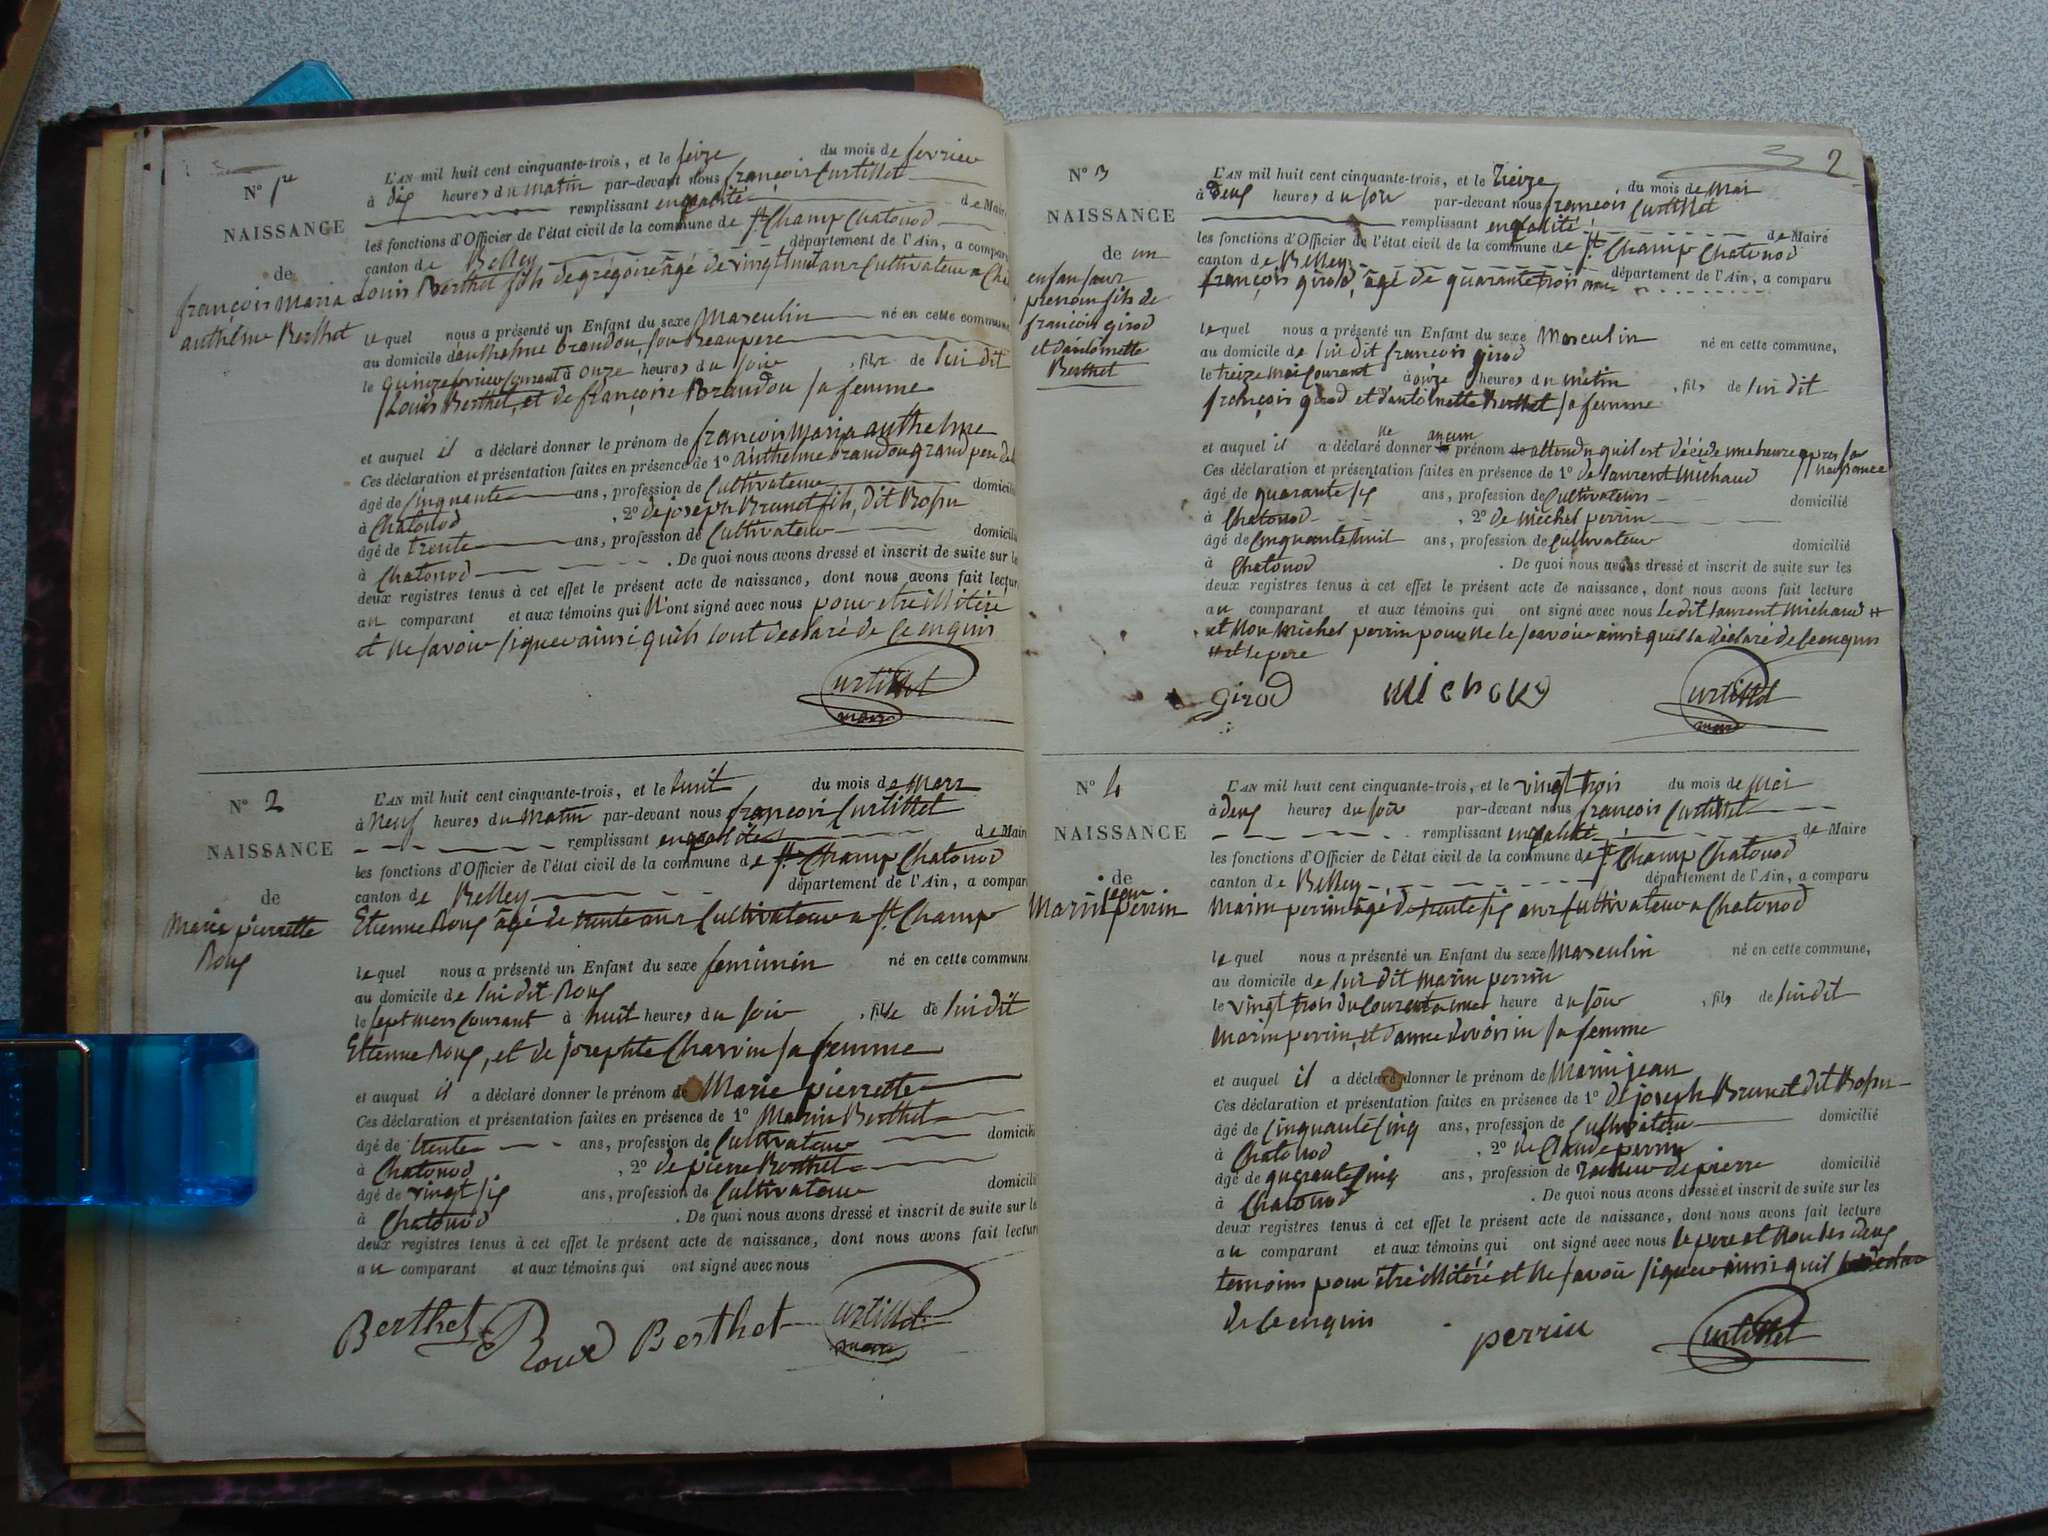 N° 1er
NAISSANCE
de
françois maria
anthelme Berthet
L'AN mil huit cent cinquante-trois, et le seize du mois de fevrier
à dix heures du matin par-devant nous françois Curtillet
remplissant en qualité de Maire
les fonctions d'Officier de l'état civil de la commune de St. Champ Chatonod
canton de Belley département de l'Ain, a compar
Louis Berthet fils de grégoire âgé de vingt huit ans Cultivateur a Cha
lequel nous a présenté un Enfant du sexe Masculin né en cette commune
au domicile d'anthelme brandou, son beaupere
le quinze fevrier Courant à onze heures du soir, fils de lui dit
Louis Berthet, et de françoise Brandou sa femme
et auquel il a déclaré donner le prénom de françois maria anthelme
Ces déclaration et présentation faites en présence de 1° anthelme brandou grand pere
âgé de Cinquante ans, profession de Cultivateur domicilié
à Chatonod, 2° de joseph Brunet fils, dit Bossu
âgé de trente ans, profession de Cultivateur domicilié
à Chatonod. De quoi nous avons dressé et inscrit de suite sur le
deux registres tenus à cet effet le présent acte de naissance, dont nous avons fait lectur
au comparant et aux témoins qui n'ont signé avec nous pour etre illitéré
et ne savoir signer ainsi quils lont declaré de ce enquis
Curtillet
maire
N° 2
NAISSANCE
de
Marie pierrette
Roux
L'AN mil huit cent cinquante-trois, et le huit du mois de Mars
à Neuf heures du Matin par-devant nous françois Curtillet
remplissant en qualité de Maire
les fonctions d'Officier de l'état civil de la commune de St. Champ Chatonod
canton de Belley département de l'Ain, a compar
Etienne Roux âgé de trente ans Cultivateur a St. Champ
lequel nous a présenté un Enfant du sexe feminin né en cette commune
au domicile de lui dit Roux
le sept mars Courant à huit heures du soir, fille de lui dit
Etienne Roux, et de josephte Charvin sa femme
et auquel il a déclaré donner le prénom de Marie pierrette
Ces déclaration et présentation faites en présence de 1° Marin Berthet
âgé de trente ans, profession de Cultivateur domicilié
à Chatonod, 2° de pierre Berthet
âgé de vingt six ans, profession de Cultivateur domicilié
à Chatonod. De quoi nous avons dressé et inscrit de suite sur le
deux registres tenus à cet effet le présent acte de naissance, dont nous avons fait lectur
au comparant et aux témoins qui ont signé avec nous
Berthet Roux Berthet Curtillet
maire
2
N° 3
NAISSANCE
de un
enfan sans
prenom fils de
françois girod
et dantoinette
Berthet
L'AN mil huit cent cinquante-trois, et le treize, du mois de Mai
à deux heures du soir par-devant nous françois Curtillet
remplissant en qualité de Maire
les fonctions d'Officier de l'état civil de la commune de St. Champ Chatonod
canton de Belley département de l'Ain, a comparu
françois girod, âgé de quarante trois ans
lequel nous a présenté un Enfant du sexe Masculin né en cette commune,
au domicile de lui dit françois girod
le treize mai Courant à onze heures du matin, fils de lui dit
françois girod et d'antoinette Berthet sa femme
et auquel il a déclaré ne donner aucun prénom de attendu quil est décédé une heure apres sa
naissance
Ces déclaration et présentation faites en présence de 1° de laurent Michaud
âgé de quarante six ans, profession de Cultivateurs domicilié
à Chatonod, 2° de Michel perrin
âgé de Cinquante huit ans, profession de Cultivateur domicilié
à Chatonod. De quoi nous avons dressé et inscrit de suite sur les
deux registres tenus à cet effet le présent acte de naissance, dont nous avons fait lecture
au comparant et aux témoins qui ont signé avec nous le dit laurent Michaud #
et Non Michel perrin pour ne le savoir ainsi quil la déclaré de ce enquis
# et le pere
girod Michaud Curtillet
maire
N° 4
NAISSANCE
de
jean
Marin perrin
L'AN mil huit cent cinquante-trois, et le vingt trois du mois de Mai
à deux heures du soir par-devant nous françois Curtillet
remplissant en qualité de Maire
les fonctions d'Officier de l'état civil de la commune de St. Champ Chatonod
canton de Belley département de l'Ain, a comparu
Marin perrin âgé de trente six ans Cultivateur a Chatonod
lequel nous a présenté un Enfant du sexe Masculin né en cette commune,
au domicile de lui dit Marin perrin
le vingt trois du Courant a une heure du soir, fils de lui dit
Marin perrin, et d'anne sa femme
et auquel il a déclaré donner le prénom de Marin jean
Ces déclaration et présentation faites en présence de 1° de joseph Brunet dit Bossu
âgé de Cinquante Cinq ans, profession de Cultivateur domicilié
à Chatonod, 2° de Claude perrin
âgé de quarante Cinq ans, profession de tailleur de pierre domicilié
à Chatonod. De quoi nous avons dressé et inscrit de suite sur les
deux registres tenus à cet effet le présent acte de naissance, dont nous avons fait lecture
au comparant et aux témoins qui ont signé avec nous le pere et Non les deux
temoins pour être illitéré et ne savoir signer ainsi quil
de ce enquis
perrin Curtillet